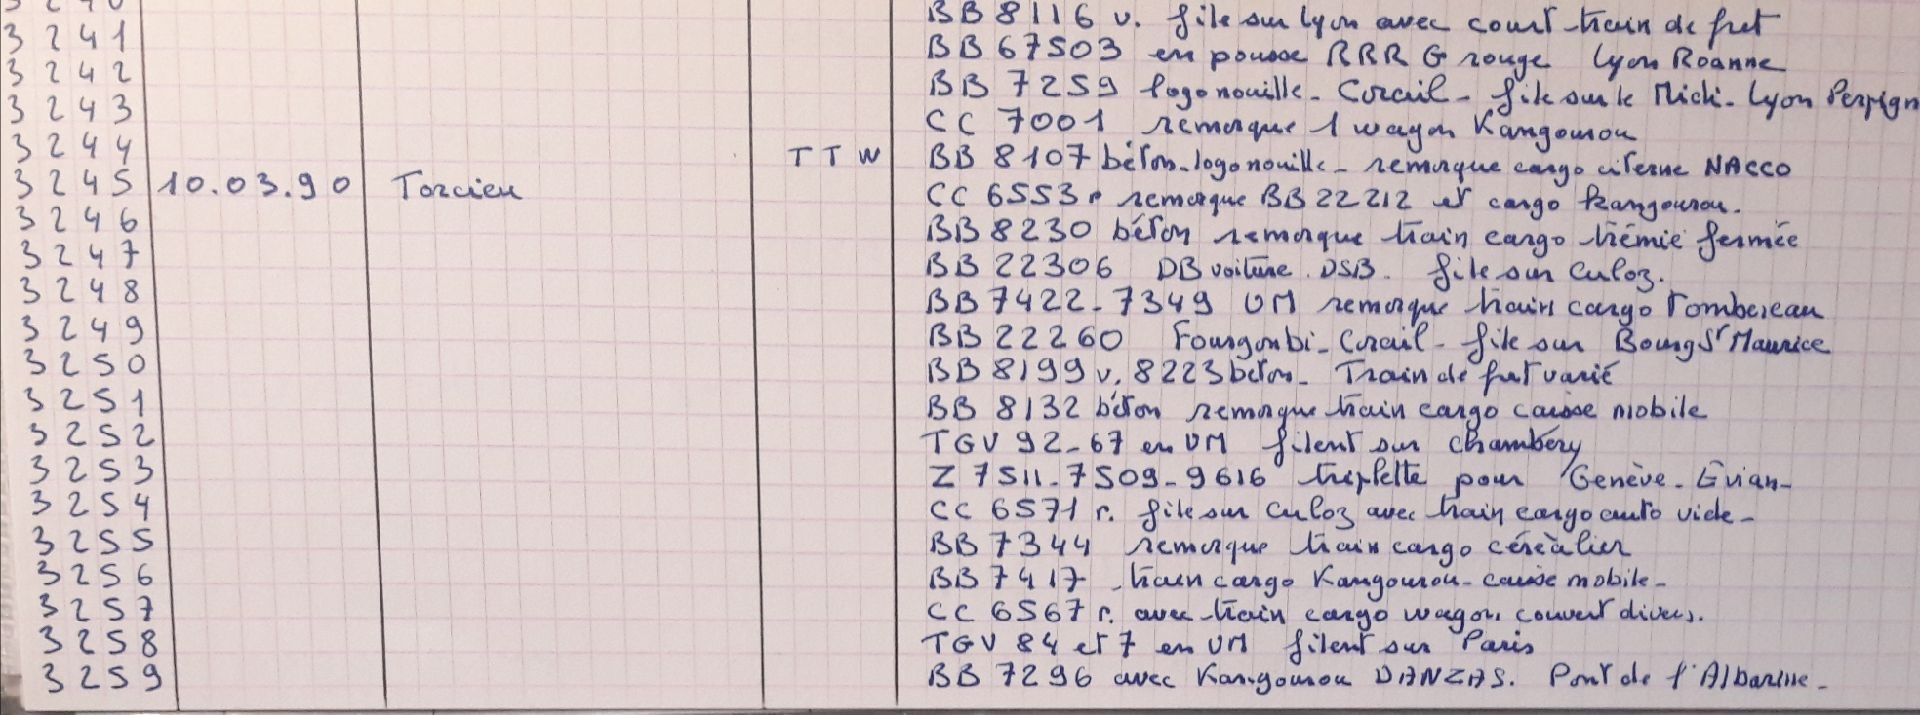 3240 BB 8116 v. file sur Lyon avec court train de fret
3241 BB 67503 en pousse RRR G rouge Lyon Roanne
3242 BB 7259 logo nouille - Corail - file sur le Midi - Lyon Perpign
3243 CC 7001 remorque 1 wagon Kangourou
3244 TTW BB 8107 béton - logo nouille - remorque cargo citerne NACCO
3245 10.03.90 Torcieu CC 6553 r remorque BB 22212 et cargo Kangourou.
3246 BB 8230 béton remorque train cargo trémie fermée
3247 BB 22306 DB voiture. DSB. file sur Culoz.
3248 BB 7422 - 7349 UM remorque train cargo Tombereau
3249 BB 22260 Fourgonbi - Corail - file sur Bourg St Maurice
3250 BB 8199 v. 8223 béton - Train de fret varié
3251 BB 8132 béton remorque train cargo caisse mobile
3252 TGV 92 - 67 en UM filent sur Chambéry
3253 Z 7511 - 7509 - 9616 triplette pour Genève - Evian -
3254 CC 6571 r. file sur Culoz avec train cargo auto vide -
3255 BB 7344 remorque train cargo céréalier
3256 BB 7417 train cargo Kangourou - caisse mobile -
3257 CC 6567 r. avec train cargo wagons couvert divers.
3258 TGV 84 et 7 en UM filent sur Paris
3259 BB 7296 avec Kangourou DANZAS. Pont de l'Albarine -